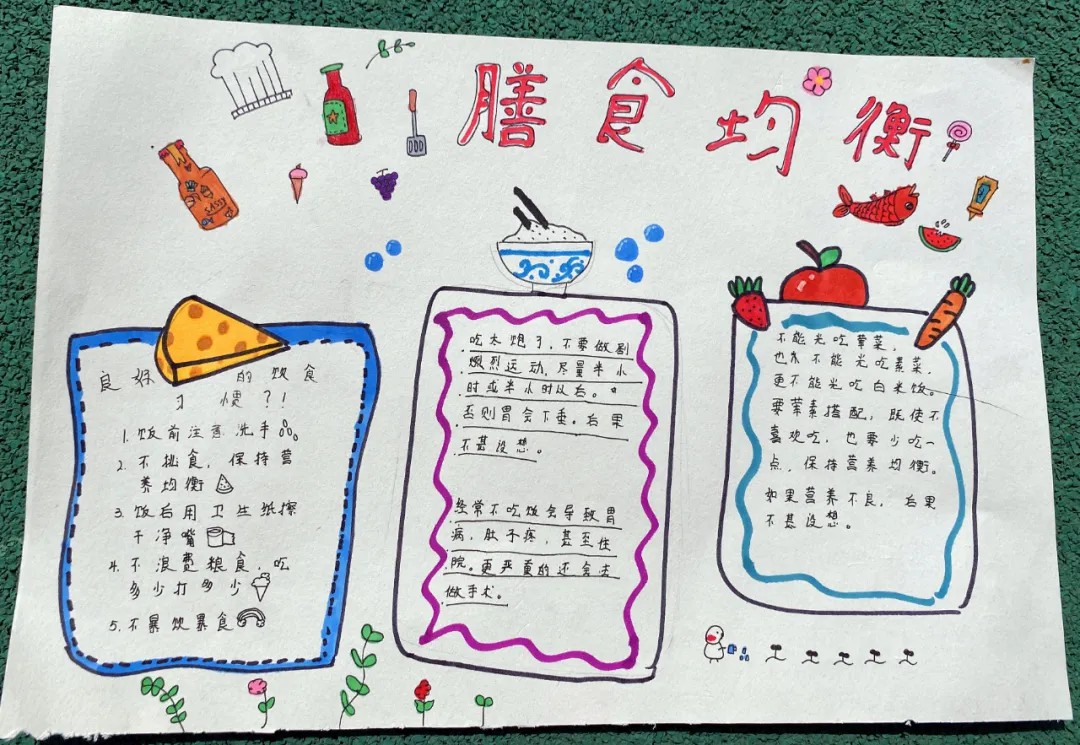 膳食均衡
SASSY
良好的饮食
习惯?!
1.饭前注意洗手
2.不挑食,保持营
养均衡
3.饭后用卫生纸擦
干净嘴
4.不浪费粮食,吃
多少打多少
5.不暴饮暴食
吃太饱了,不要做剧
烈运动,尽量半小
时或半小时以后。
否则胃会下垂。后果
不甚设想。
经常不吃饭会导致胃
病,肚子疼,甚至住
院。更严重的还会去
做手术。
不能光吃荤菜,
也不能光吃素菜,
更不能光吃白米饭。
要荤素搭配,既使不
喜欢吃,也要少吃一
点,保持营养均衡。
如果营养不良,后果
不甚设想。